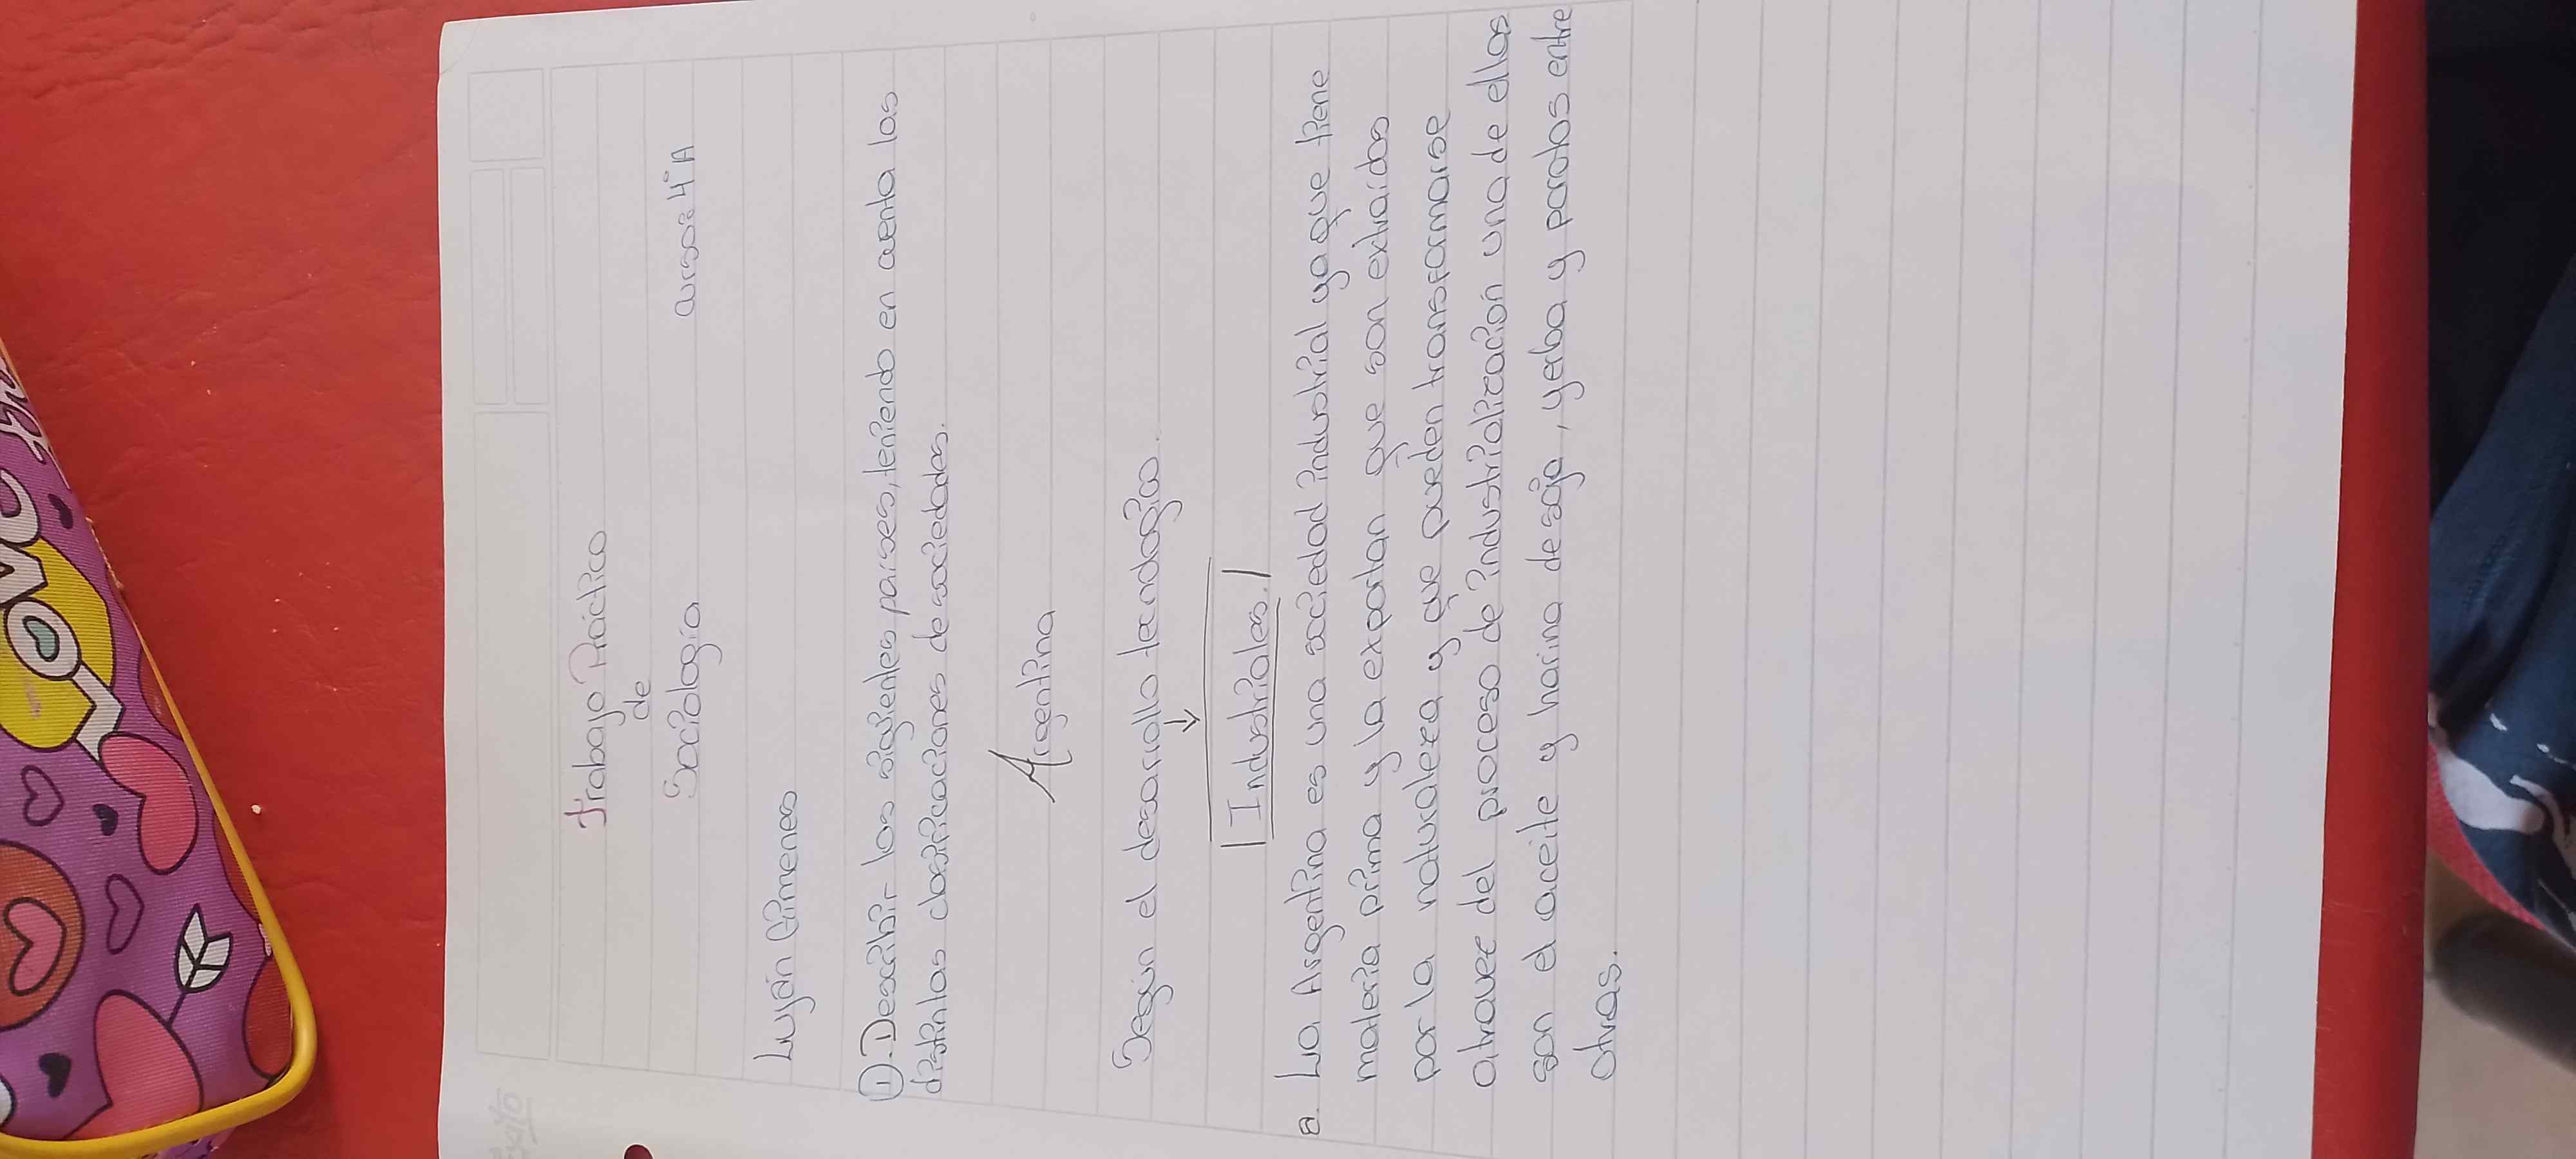 Trabajo Práctico
de
Sociología
curso: 4°A
Luján Gimenes
1. Describir los siguientes paises, teniendo en cuenta las
distintas clasificaciones de sociedades.
Argentina
Según el desarrollo tecnologico.
↓
Industriales.
a. La Argentina es una sociedad industrial ya que tiene
materia prima y la exportan que son extraídos
por la naturaleza y que pueden transformarse
atravez del proceso de industrialización una de ellas
son el aceite y harina de soja, yerba y porotos entre
otras.
LOVE